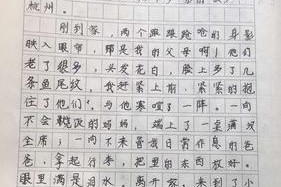 杭州。
刚到家，两个踉踉跄跄的身影
映入眼帘，那是我的父母啊！他们
老了很多，头发花白，脸上多了几
条鱼尾纹，我赶紧上前，紧紧的抱
住了他们，与他寒喧了一阵。一向
不会做饭的妈妈，端上了一桌满汉
全席；一向不来管我日常作息的爸
爸，拿起行李，把里的东西放好。
眼里满是泪水，离开家，来到了小